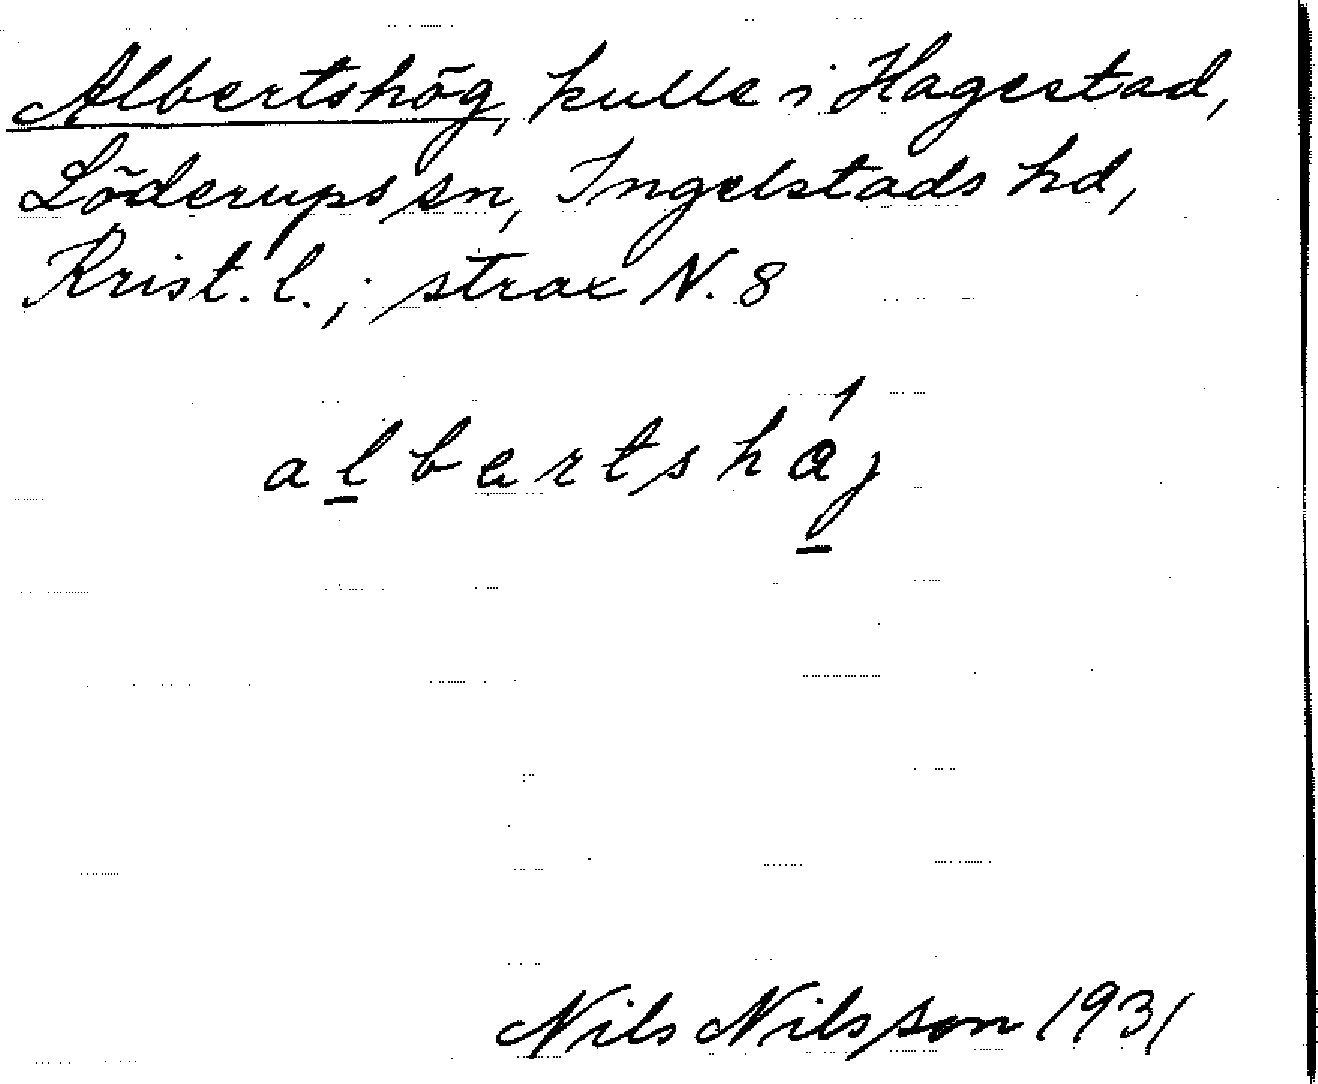 Albertshög, kulle i Hagestad,
Löderups sn, Ingelstads hd,
Krist. l.; strax N. 8
albertsháj
Nils Nilsson 1931